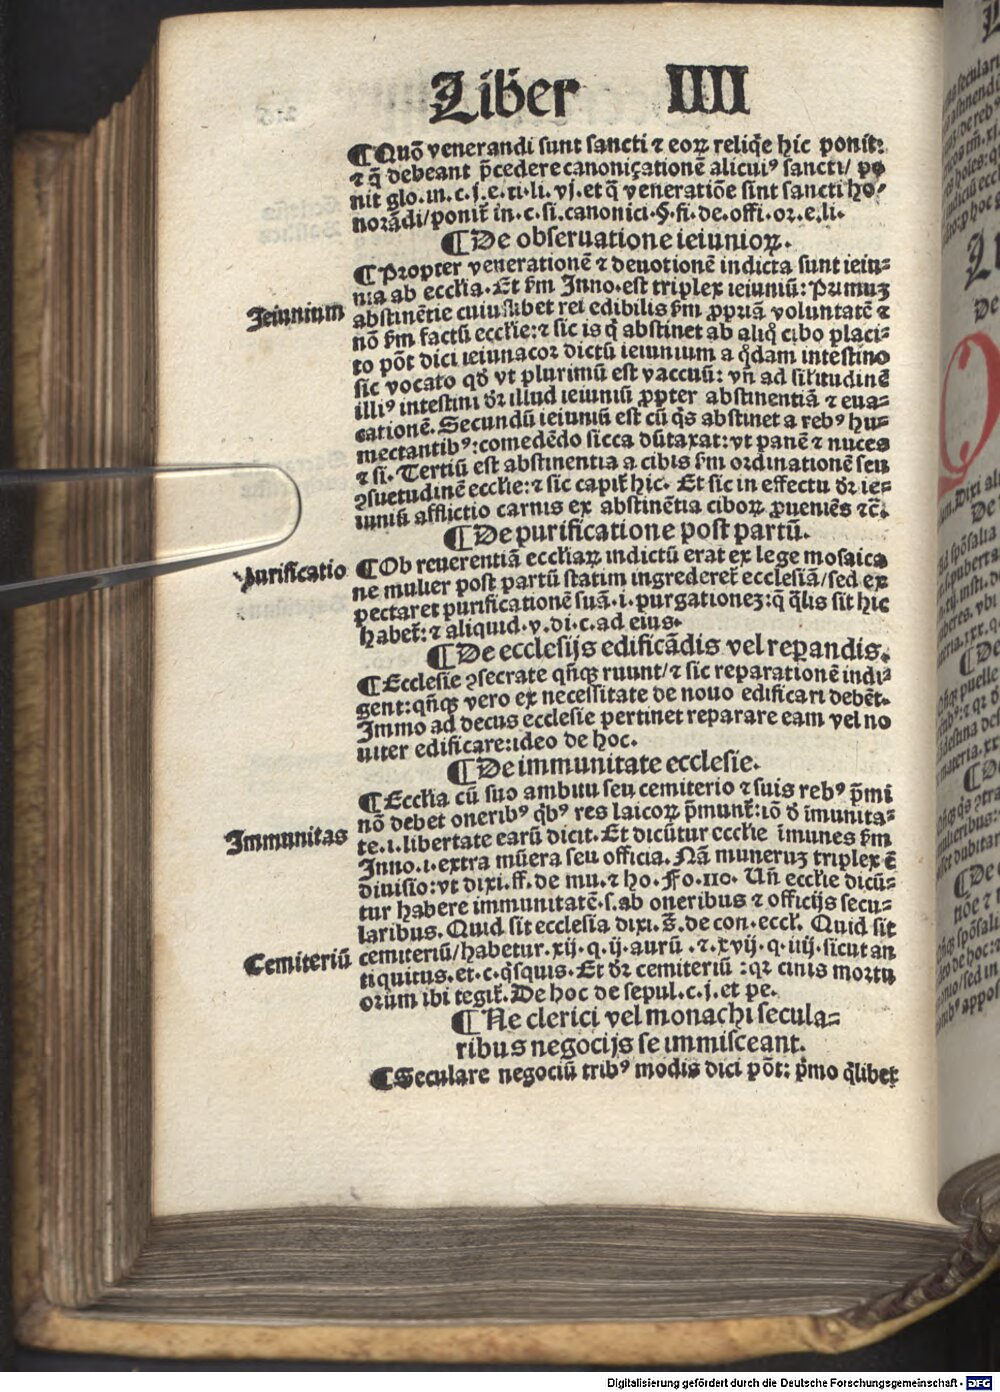 Liber IIII
¶Quō venerandi sunt sancti ⁊ eoꝝ reliq̄e hic ponit̄:
⁊ q̄ debeant p̄cedere canoniçationē alicuiꝰ sancti/ po
nit glo.in.c.j.e.ti.li.vj.et q̄ veneratiōe sint sancti ho-
norādi/ponit̄ in.c.si.canonici.§.fi.de.offi.or.e.li.
¶De obseruatione ieiunioꝝ.
¶Propter venerationē ⁊ deuotionē indicta sunt ieiu=
nia ab eccl'ia.Et s̄m Inno.est triplex ieiuniū: Primuȝ
Ieiunium
abstinētie cuiuslibet rei edibilis s̄m ꝓpriā voluntatē ⁊
nō s̄m factū eccl'ie:⁊ sic is q̄ abstinet ab aliq̊ cibo placi=
to pōt dici ieiunacoꝛ dictū ieiunium a q̊dam intestino
sic vocato qd̓ vt plurimū est vaccuū: vn̄ ad sil'itudinē
illiꝰ intestini dr̄ illud ieiuniū ꝓpter abstinentiā ⁊ eua=
cationē.Secundū ieiuniū est cū q̄s abstinet a rebꝰ hu=
mectantibꝰ:comedēdo sicca dūtaxat:vt panē ⁊ nuces
⁊ si.Tertiū est abstinentia a cibis s̄m ordinationē seu
ꝯsuetudinē eccl'ie:⁊ sic capit̄ hic. Et sic in effectu dr̄ ie=
iuniū afflictio carnis ex abstinētia ciboꝝ ꝓueniēs ⁊c̄.
¶De purificatione post partū.
Purificatio
¶Ob reuerentiā eccl'iaꝝ indictū erat ex lege mosaica
ne mulier post partū statim ingrederet̄ ecclesiā/sed ex
pectaret purificationē suā.i.purgationeȝ:q̄ q̄lis sit hic
habet̄:⁊ aliquid.v.di.c.ad eius.
¶De ecclesijs edificādis vel reꝑandis.
¶Ecclesie ꝯsecrate qn̄qꝫ ruunt/⁊ sic reparationē indi
gent:qn̄qꝫ vero ex necessitate de nouo edificari debēt.
Immo ad decus ecclesie pertinet reparare eam vel no
uiter edificare:ideo de hoc.
¶De immunitate ecclesie.
¶Eccl'ia cū suo ambitu seu cemiterio ⁊ suis rebꝰ p̄mi
nō debet oneribꝰ q̄bꝰ res laicoꝝ p̄munt̄:iō d̓ īmunita=
Immunitas
te.i.libertate earū dicit. Et dicūtur eccl'ie īmunes s̄m
Inno.i.extra mūera seu officia. Nā muneruȝ triplex ē
diuisio:vt dixi.ff.de mu.⁊ ho.Fo.110. Un̄ eccl'ie dicū=
tur habere immunitatē.s.ab oneribus ⁊ officijs secu=
laribus. Quid sit ecclesia dixi.s̄.de con.eccl'. Quid sit
Cemiteriū
cemiteriū/habetur.xij.q.ij.aurū.⁊.xvij.q.iiij.sicut an
tiquitus.et.c.q̄squis.Et dr̄ cemiteriū :qꝛ cinis mortu
orum ibi tegit̄.De hoc de sepul.c.j.et pe.
¶Ne clerici vel monachi secula=
ribus negocijs se immisceant.
¶Seculare negociū tribꝰ modis dici pōt: p̄mo q̄libet
Digitalisierung gefördert durch die Deutsche Forschungsgemeinschaft - DFG